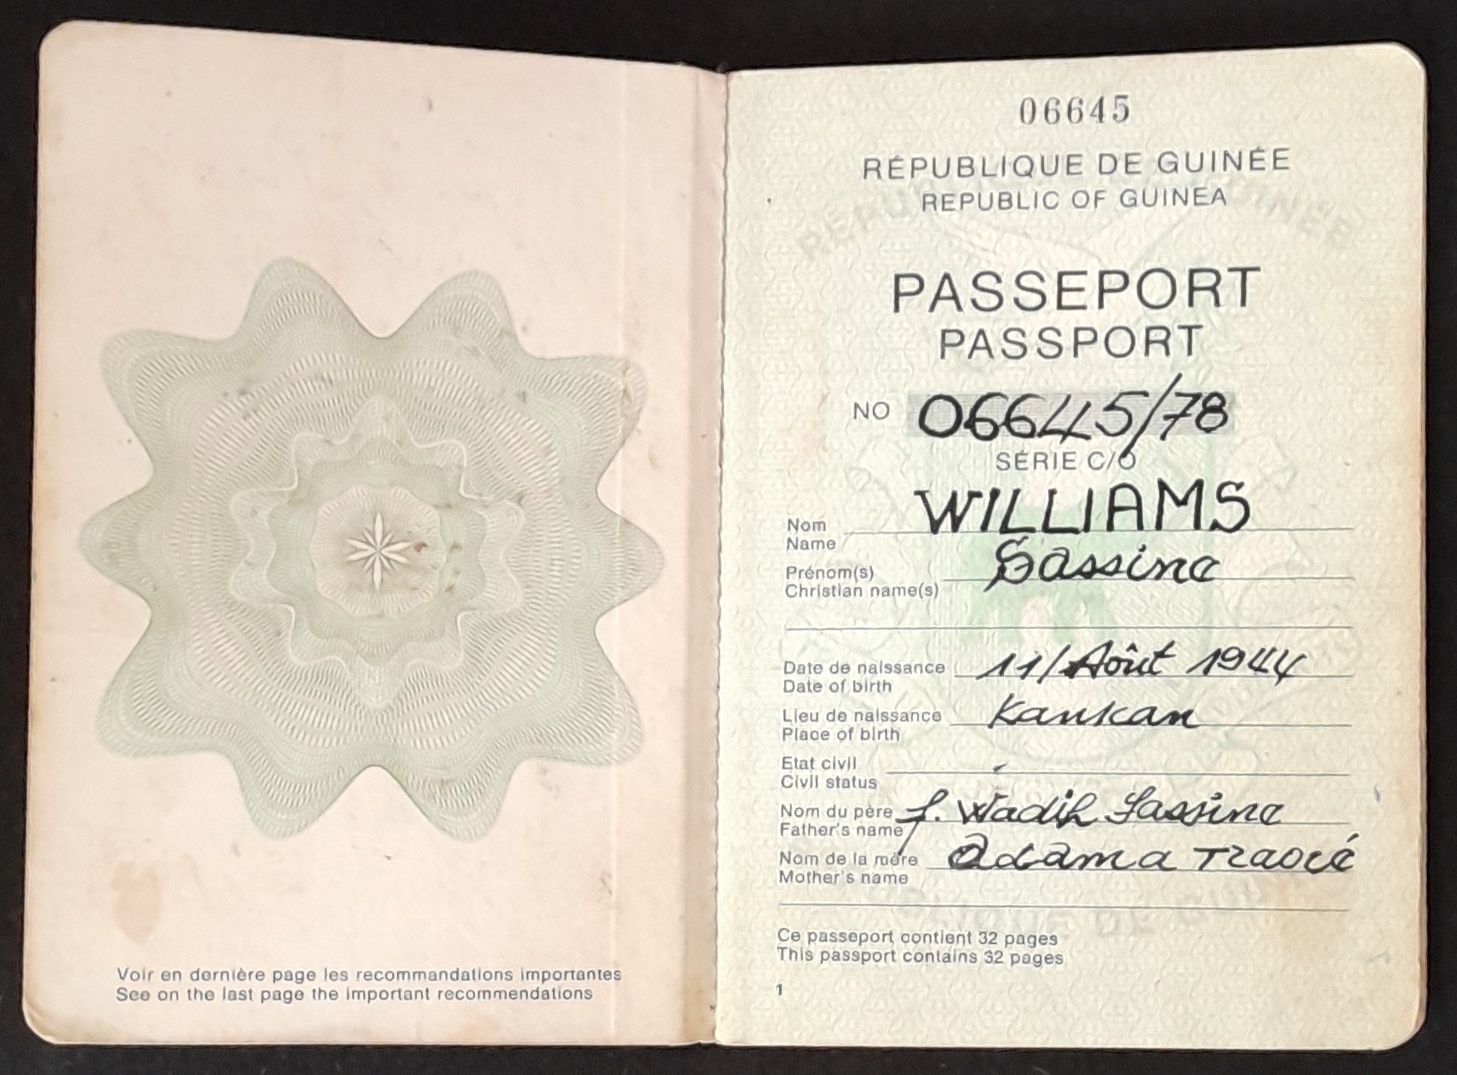 Voir en dernière page les recommandations importantes
See on the last page the important recommendations
06645
RÉPUBLIQUE DE GUINÉE
REPUBLIC OF GUINEA
PASSEPORT
PASSPORT
NO 06645/78
SÉRIE C/O
Nom WILLIAMS
Name
Prénom(s) Sassine
Christian name(s)
Date de naissance 11/Août 1944
Date of birth
Lieu de naissance Kankan
Place of birth
Etat civil
Civil status
Nom du père f. Wadih Sassine
Father's name
Nom de la mère Adama Traoré
Mother's name
Ce passeport contient 32 pages
This passport contains 32 pages
1